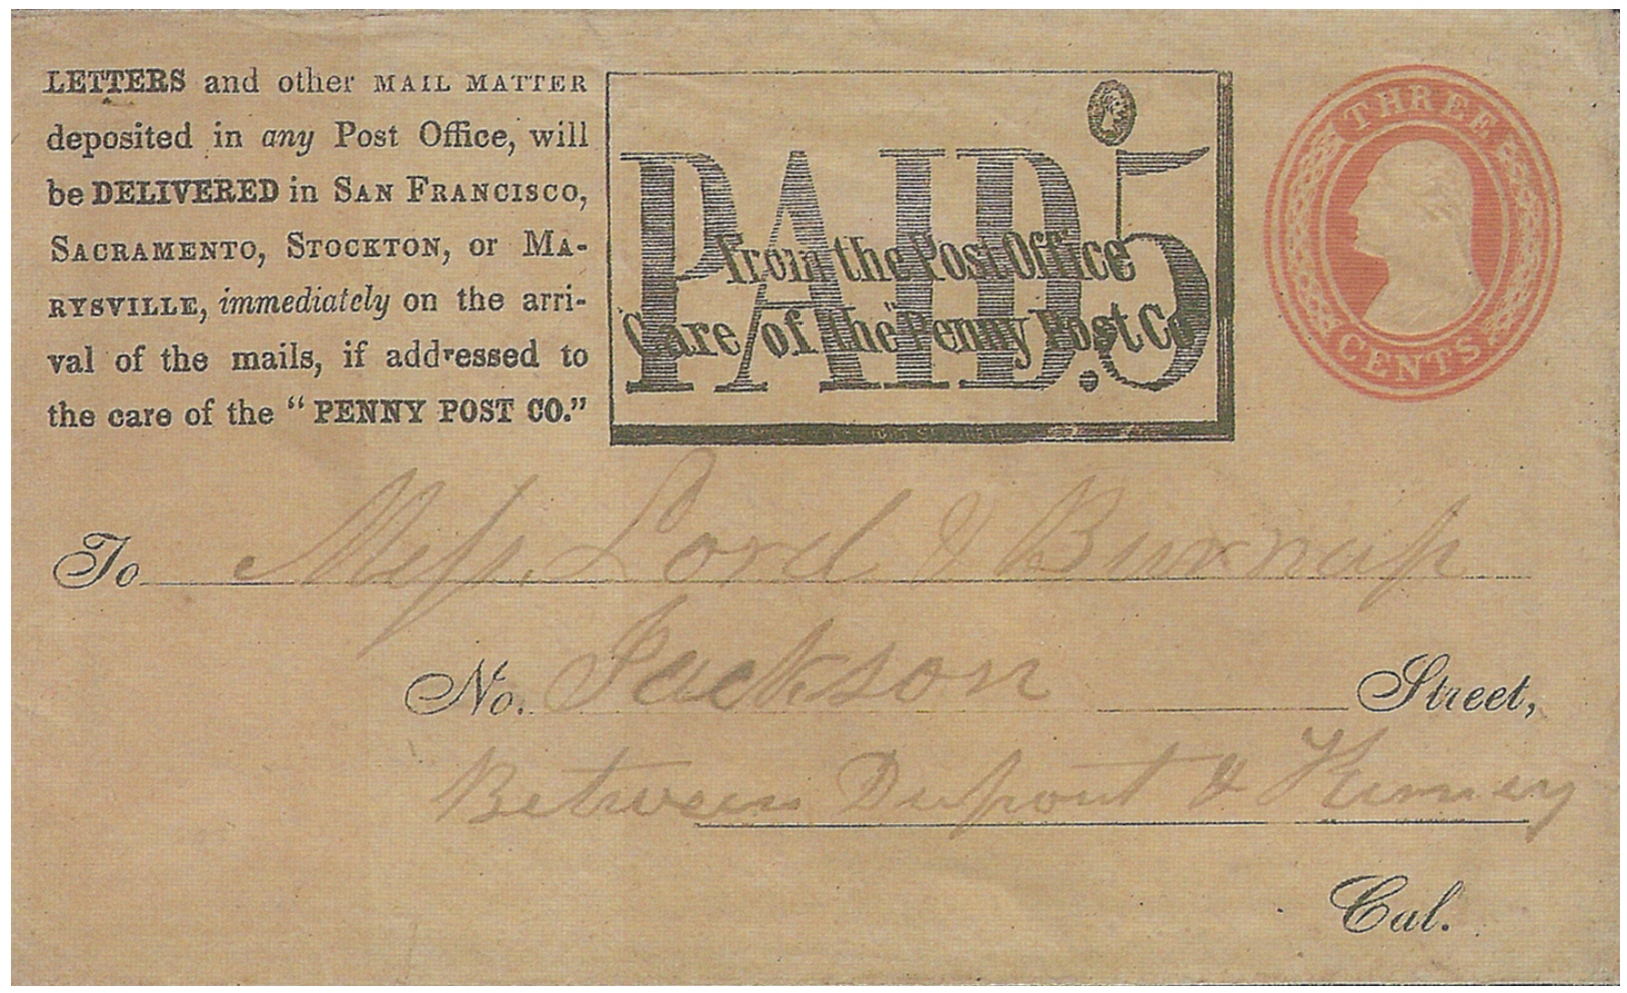 LETTERS and other MAIL MATTER
deposited in any Post Office, will
be DELIVERED in SAN FRANCISCO,
SACRAMENTO, STOCKTON, or MA-
RYSVILLE, immediately on the arri-
val of the mails, if addressed to
the care of the "PENNY POST CO."
PAID.5
from the Post Office
Care of the "Penny Post Co
THREE
CENTS
To Mess. Lord & Burnap
No. Jackson Street,
Between Dupont & Kearney
Cal.